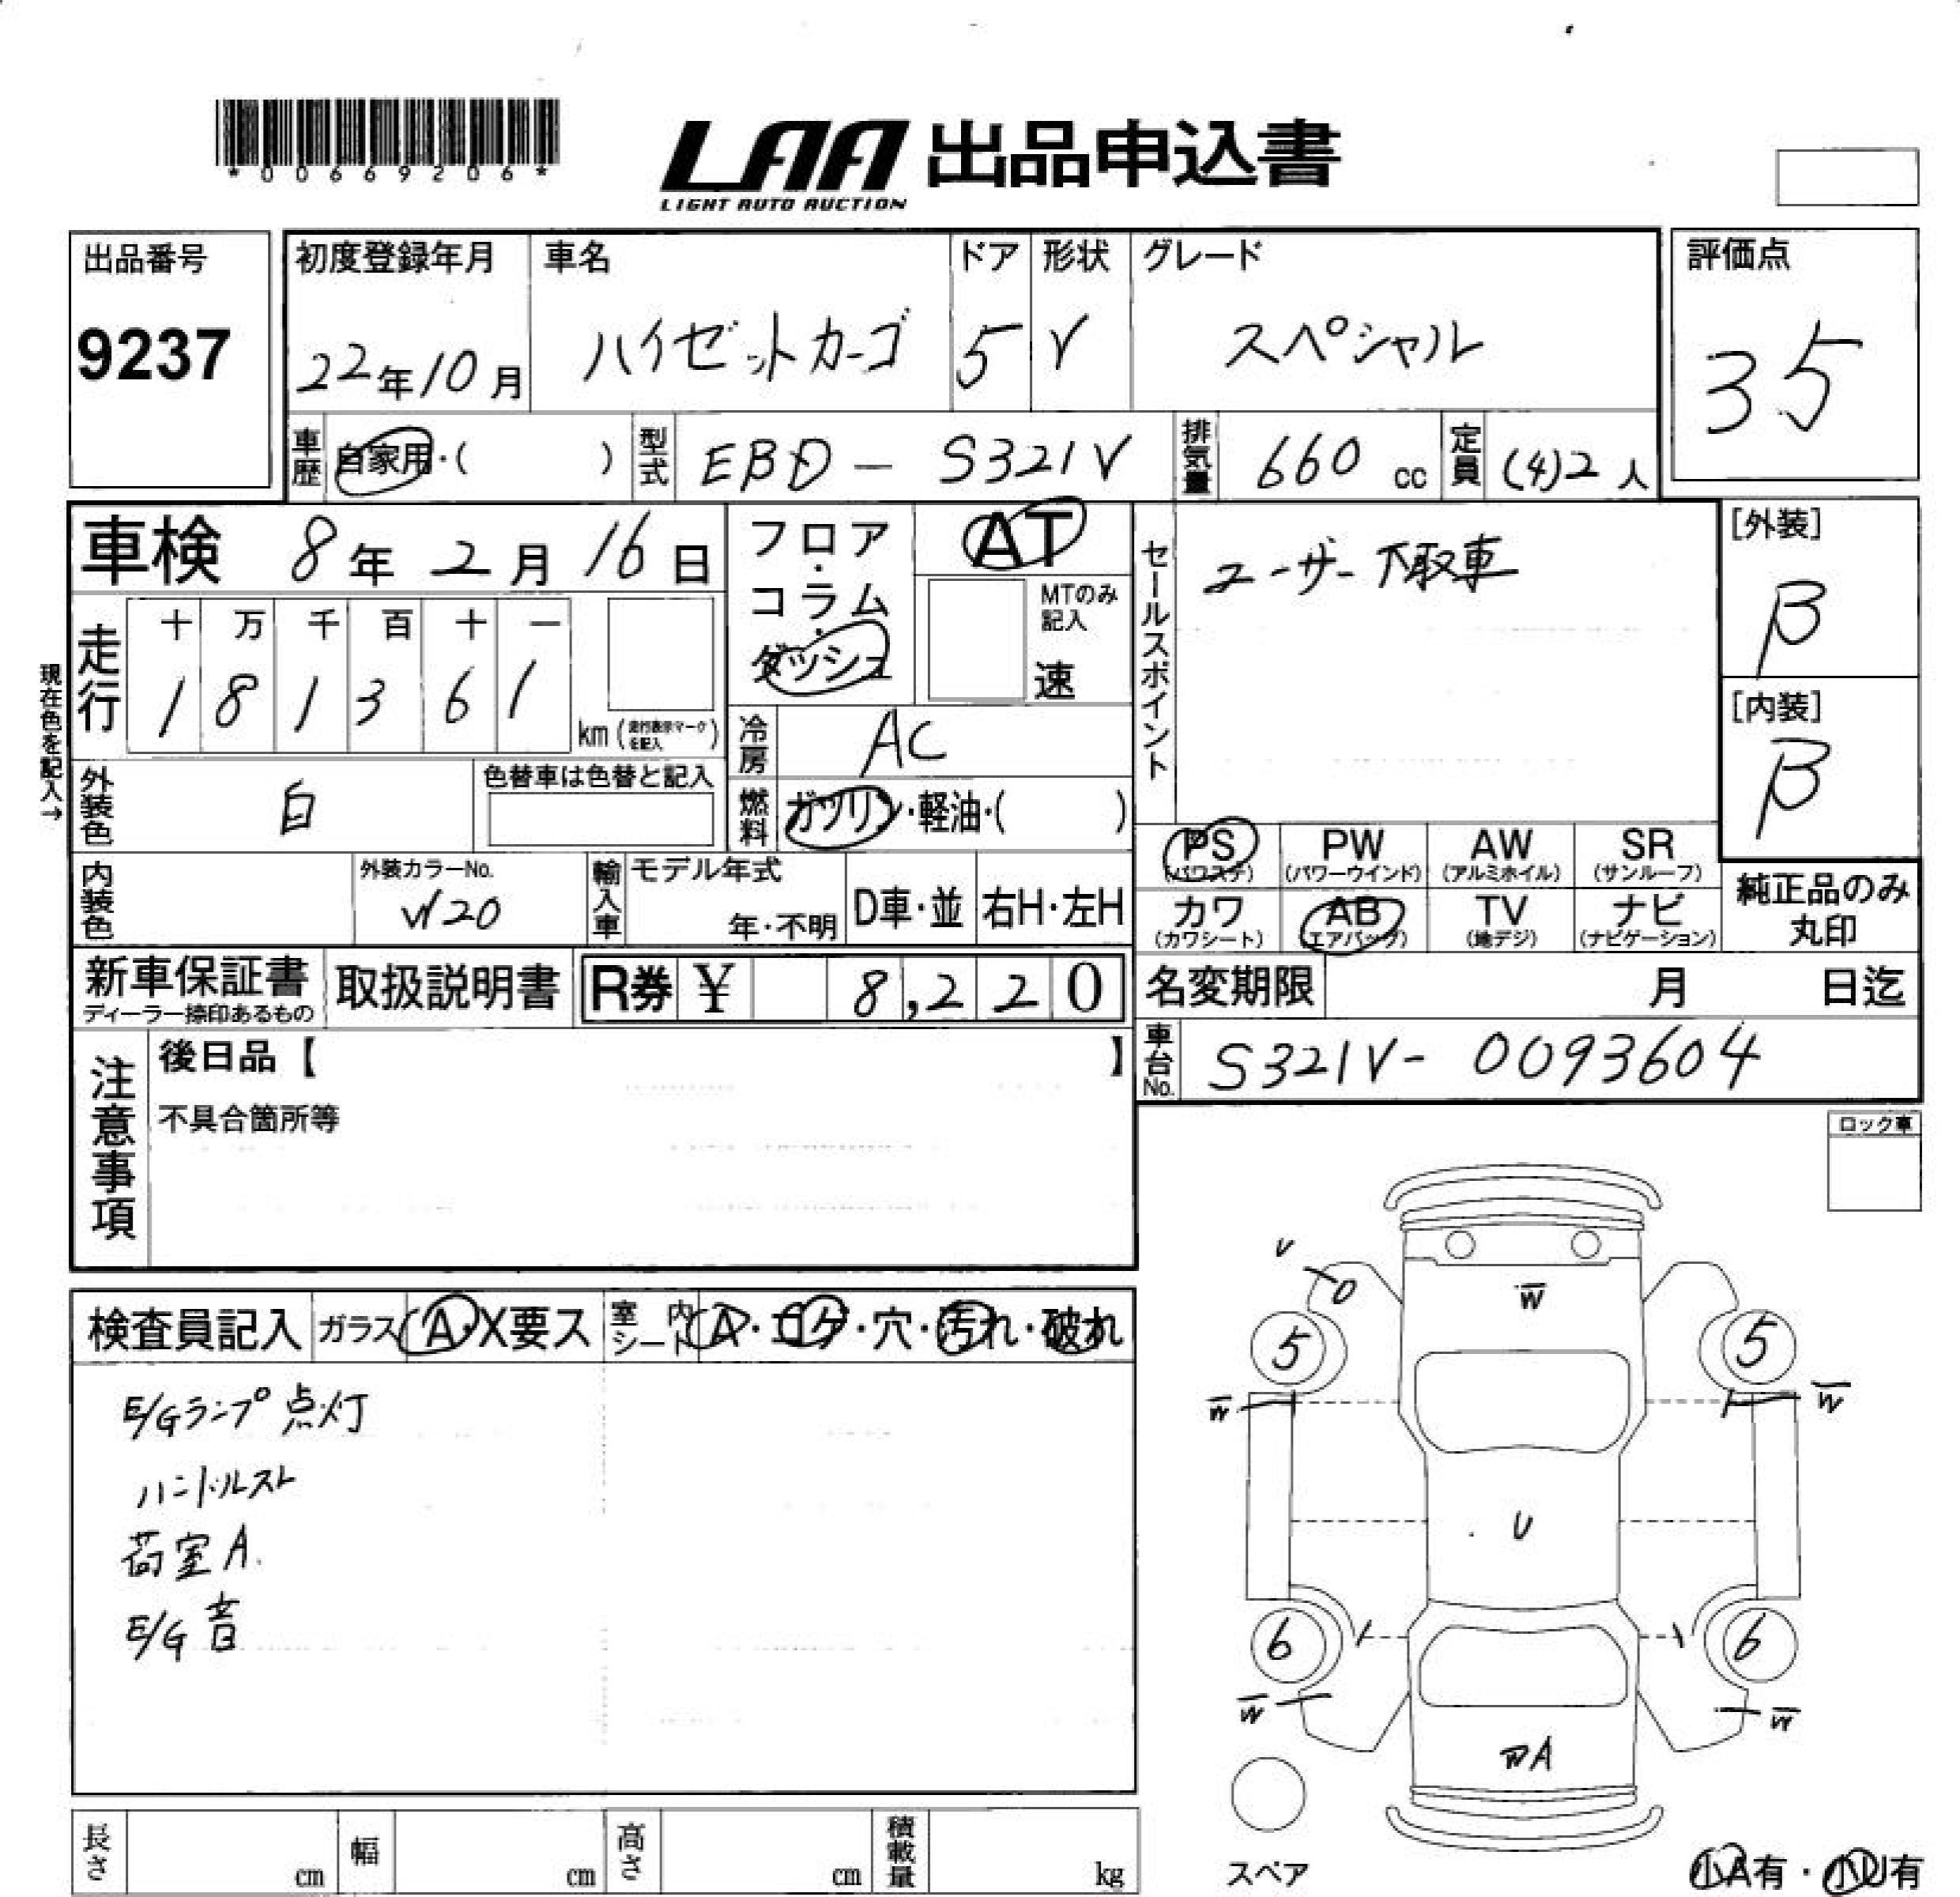 *00669206*
LAA 出品申込書
LIGHT AUTO AUCTION
出品番号
9237
初度登録年月
22年10月
車名
ハイゼットカーゴ
ドア
5
形状
V
グレード
スペシャル
評価点
35
車歴
自家用・( )
型式
EBD - S321V
排気量
660 cc
定員
(4)2人
車検 8年2月16日
現在色を記入→
走行
十 万 千 百 十 一
1 8 1 3 6 1
km (走行表示マークを記入)
フロア・コラム・ダッシュ
AT
MTのみ記入
速
冷房
AC
燃料
ガソリン・軽油・( )
外装色
白
色替車は色替と記入
内装色
外装カラーNo.
W20
輸入車
モデル年式
年・不明
D車・並
右H・左H
セールスポイント
ユーザー下取車
[外装]
B
[内装]
B
PS
(パワステ)
PW
(パワーウインド)
AW
(アルミホイル)
SR
(サンルーフ)
カワ
(カワシート)
AB
(エアバッグ)
TV
(地デジ)
ナビ
(ナビゲーション)
純正品のみ
丸印
新車保証書
ディーラー捺印あるもの
取扱説明書
R券 ¥ 8,220
名変期限 月 日迄
車台No.
S321V- 0093604
注意事項
後日品【 】
不具合箇所等
ロック車
検査員記入
ガラス
A・X要ス
室内シート
A・コゲ・穴・汚れ・破れ
E/Gランプ点灯
ハンドルスレ
荷室A.
E/G音
U
W
5
5
W
W
U
6
6
W
W
WA
スペア
小A有・小U有
長さ cm
幅 cm
高さ cm
積載量 kg